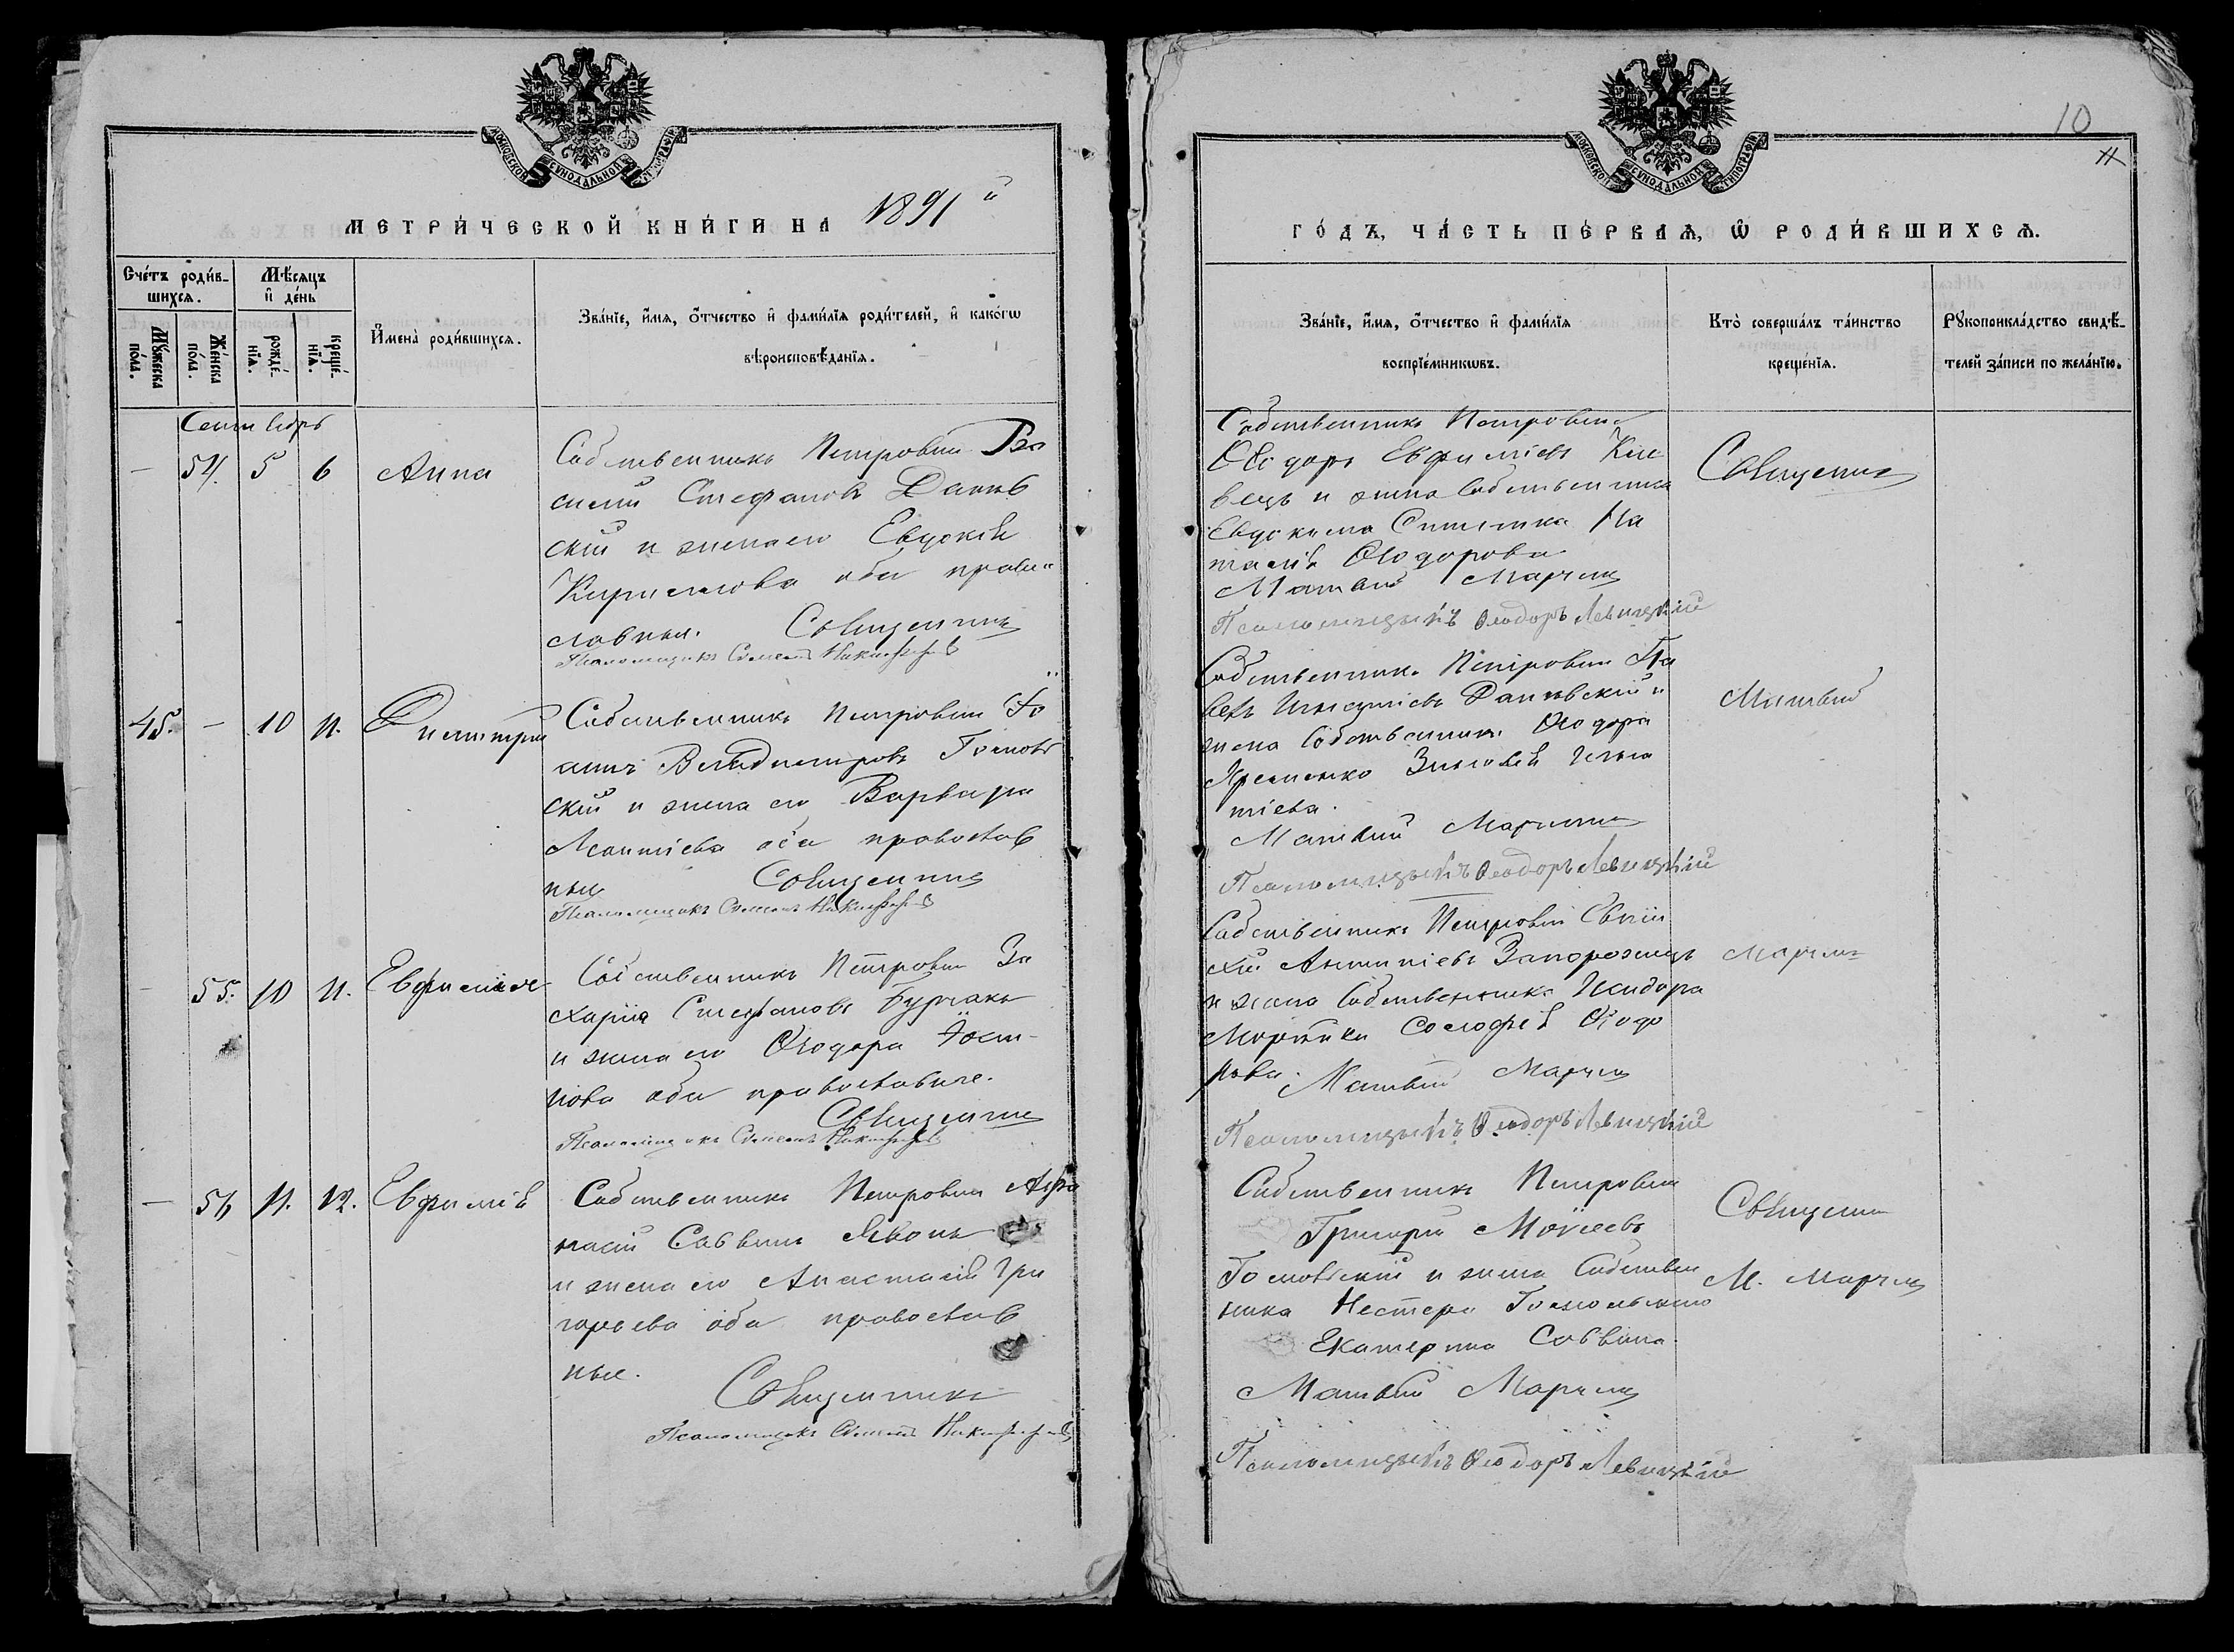 МОСКОВСКОЙ СѴНОДАЛЬНОЙ ТИПОГРАФІИ
МЕТРИ́ЧЕСКОЙ КНИ́ГИ НА 1891 й
Сче́тъ роди́в-
шихся.
Мѣ́сяцъ
и҆ де́нь
И҆мена̀ роди́вшихся.
Зва́нїе, и҆́мя, ѻ҆́тчество и҆ фами́лїѧ роди́телей, и҆ како́гѡ
вѣроисповѣ́данїѧ.
Мꙋ́жеска
по́ла.
Же́нска
по́ла.
рожде́-
нїѧ.
креще́-
нїѧ.
Сентябрь
— 54. 5 6 Анна
Собственникъ Петровки Ва
силій Стефановъ Даньв
скій и жена его Евдокія
Кириллова оба право
славныя. Священникъ
Псаломщикъ Симеонъ Никифоровъ
45. — 10 11. Димитрій
Собственникъ Петровки Іо
аннъ Владимировъ Голов
скій и жена его Варвара
Леонтіева оба православ
ные Священникъ
Псаломщикъ Симеонъ Никифоровъ
— 55. 10 11. Евфимія
Собственникъ Петровки За
харія Стефановъ Бурлака
и жена его Ѳеодора Іоан-
нова оба православные.
Священникъ
Псаломщикъ Симеонъ Никифоровъ
— 56 11. 12. Евфимія
Собственникъ Петровки Аѳа
насій Саввинъ
и жена его Анастасія Гри
горьева оба православ
ные.
Священникъ
Псаломщикъ Симеонъ Никифоровъ
10
МОСКОВСКОЙ СѴНОДАЛЬНОЙ ТИПОГРАФІИ
ГО́ДЪ, ЧА́СТЬ ПЕ́РВАѦ, Ѡ҆ РОДИ́ВШИХСѦ.
Зва́нїе, и҆́мя, ѻ҆́тчество и҆ фами́лїѧ
воспрїе́мникѡвъ.
Кто̀ соверша́лъ та́инство
креще́нїѧ.
Рꙋкоприкла́дство свидѣ́-
телей за́писи по жела́нїю.
Собственникъ Петровки
Ѳеодоръ Евфиміевъ Кие
вецъ и жена собственника
Евдокима Ситника На
талія Ѳеодорова
Матвій Марчин
Псаломщикъ Ѳеодоръ Левицкій
Священник
Собственникъ Петровки Па
велъ Игнатіевъ Даньвскій и
жена собственника Ѳеодора
Яременко Зиновія Игна
тіева.
Матвій Марчин
Псаломщикъ Ѳеодоръ Левицкій
Матвій
Собственникъ Петровки Евти
хій Антиніевъ Запорожецъ
и жена собственника Исидора
Мориики Соломія Ѳеодо
рова.
Матвій Марчин
Псаломщикъ Ѳеодоръ Левицкій
Марчин
Собственникъ Петровки
Григорій Моисеевъ
Головскій и жена собствен
ника Нестера Гомольскаго
Екатерина Саввина
Матвій Марчин
Псаломщикъ Ѳеодоръ Левицкій
Священник
М. Марчин